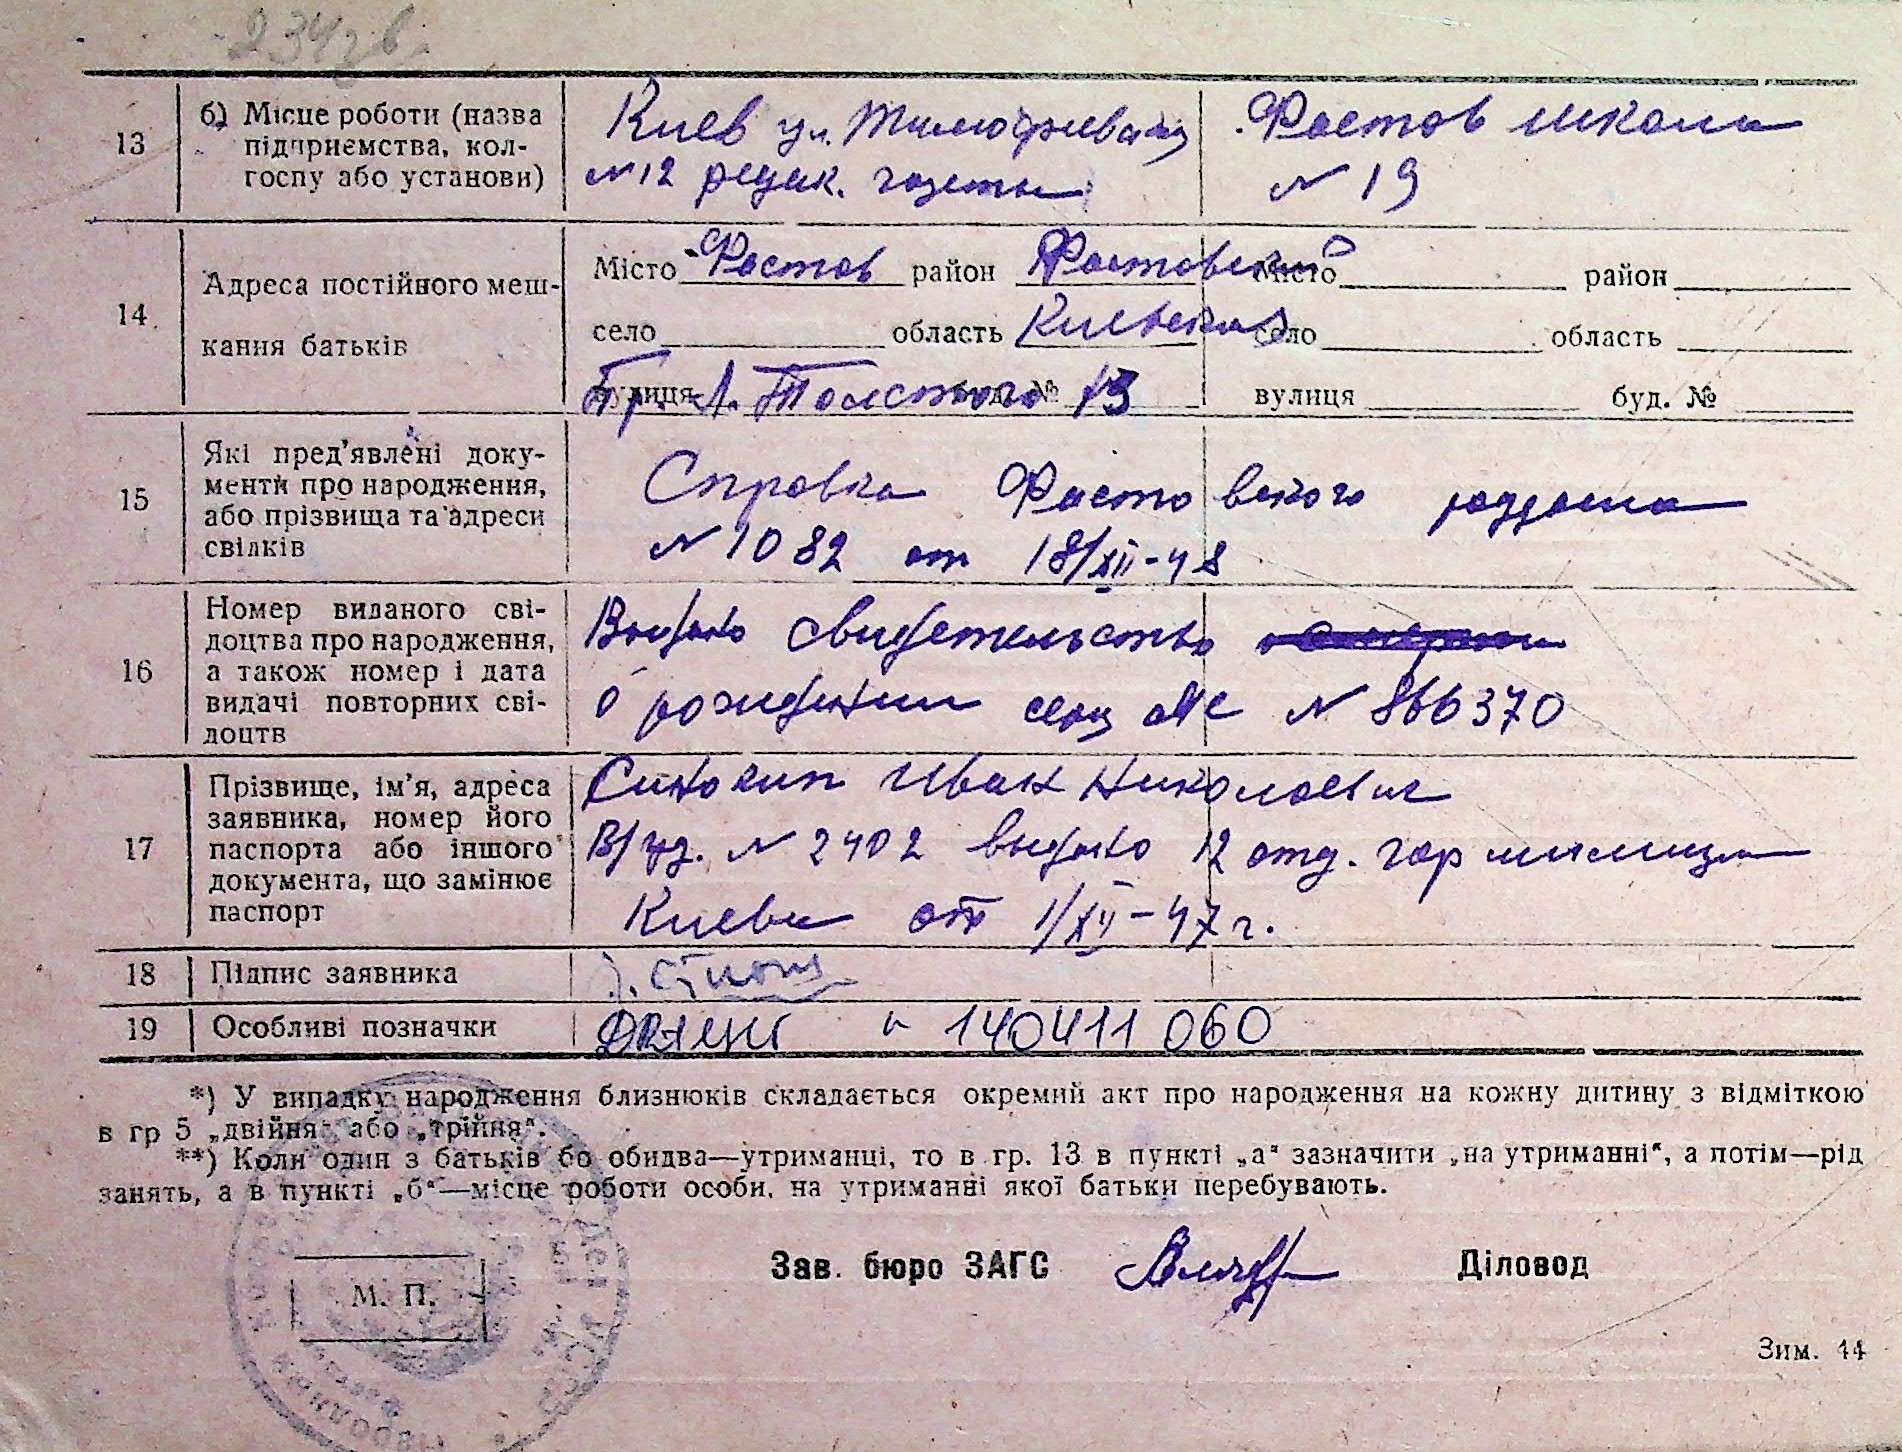 13 б) Місце роботи (назва підприємства, колгоспу або установи)
Киев ул.
№12 редак. газеты
Фастов школа
№ 19
14 Адреса постійного мешкання батьків
Місто Фастов район Фастовский
село область Киевская
вулиця Л. Толстого буд. № 13
Місто район
село область
вулиця буд. №
15 Які пред'явлені документи про народження, або прізвища та адреси свідків
Справка Фастовского роддома
№ 1082 от 18/XII-48
16 Номер виданого свідоцтва про народження, а також номер і дата видачі повторних свідоцтв
Выдано свидетельство
о рождении № 866370
17 Прізвище, ім'я, адреса заявника, номер його паспорта або іншого документа, що замінює паспорт
Иван Николаевич
№ 2402 выдано 12 отд. гор милиции
Киева от 1/XII-47 г.
18 Підпис заявника
19 Особливі позначки
140411060
*) У випадку народження близнюків складається окремий акт про народження на кожну дитину з відміткою
в гр 5 „двійня“ або „трійня“.
**) Коли один з батьків бо обидва—утриманці, то в гр. 13 в пункті „а“ зазначити „на утриманні“, а потім—рід
занять, а в пункті „б“—місце роботи особи, на утриманні якої батьки перебувають.
М. П.
Зав. бюро ЗАГС
Діловод
Зим. 44